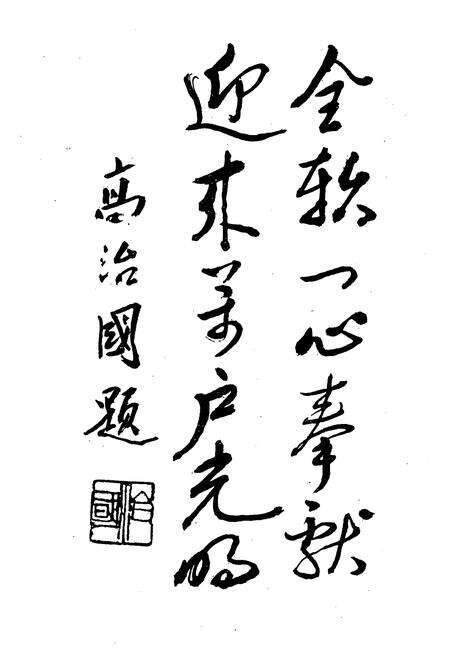 全一心奉献
迎来萬户光明
高治國題
治國